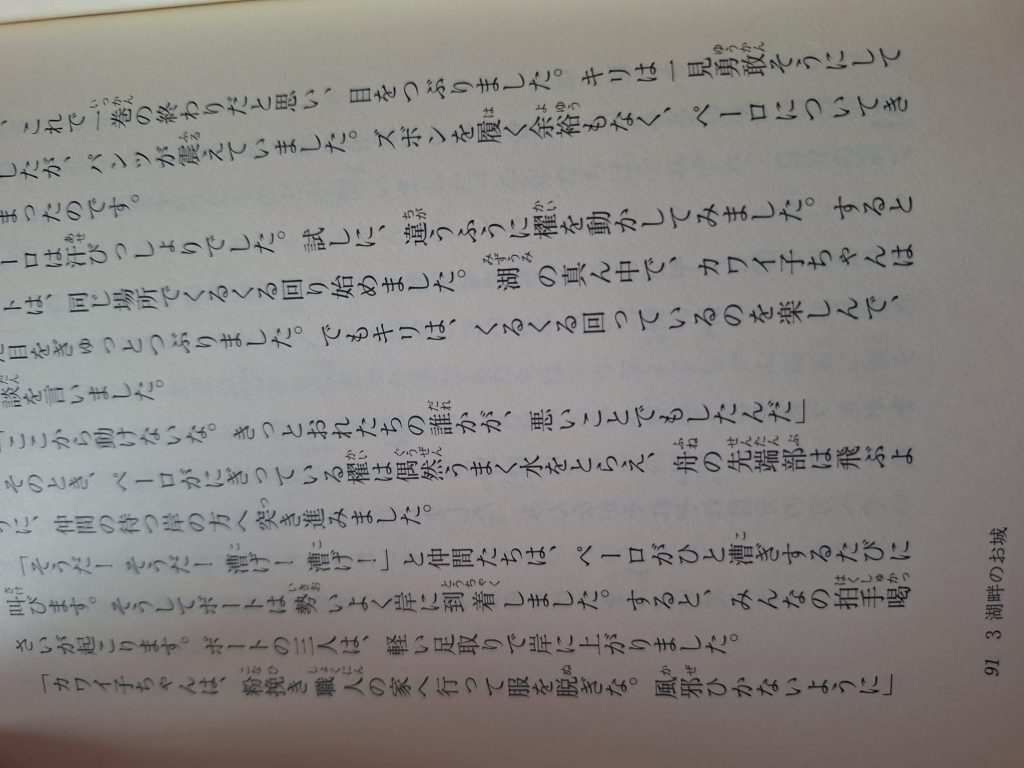 、これで一巻の終わりだと思い、目をつぶりました。キリは一見勇敢そうにして
したが、パンツが震えていました。ズボンを履く余裕もなく、ペーロについてき
まったのです。
ーロは汗びっしょりでした。試しに、違うふうに櫂を動かしてみました。すると
トは、同じ場所でくるくる回り始めました。湖の真ん中で、カワイ子ちゃんは
た目をぎゅっとつぶりました。でもキリは、くるくる回っているのを楽しんで、
談を言いました。
「ここから動けないな。きっとおれたちの誰かが、悪いことでもしたんだ」
そのとき、ペーロがにぎっている櫂は偶然うまく水をとらえ、舟の先端部は飛ぶよ
うに、仲間の待つ岸の方へ突き進みました。
「そうだー！そうだー！漕げー！漕げー！」と仲間たちは、ペーロがひと漕ぎするたびに
叫びます。そうしてボートは勢いよく岸に到着しました。すると、みんなの拍手喝
さいが起こります。ボートの三人は、軽い足取りで岸に上がりました。
「カワイ子ちゃんは、粉挽き職人の家へ行って服を脱ぎな。風邪ひかないように」
91 3 湖畔のお城